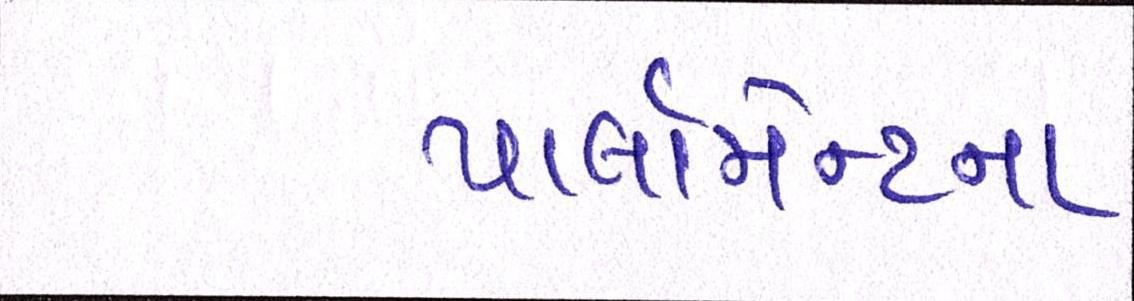 પાર્લામેન્ટના